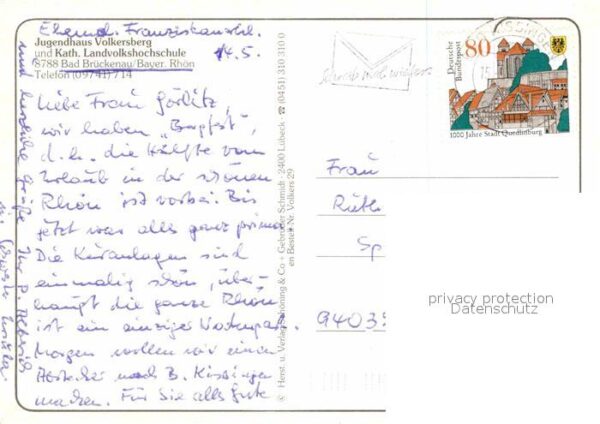 Ehemal. Franziskanerkl.
Jugendhaus Volkersberg
und Kath. Landvolkshochschule
8788 Bad Brückenau/Bayer. Rhön
Telefon (09741) 714
14.5.
Liebe Frau Görlitz,
wir haben „Bergfest",
d.h. die Hälfte vom
Urlaub in der schönen
Rhön ist vorbei. Bis
jetzt war alles ganz prima.
Die Kuranlagen sind
einmalig schön, über-
haupt die ganze Rhön
ist ein einziger Naturpark.
Morgen wollen wir einen
Abstecher nach B. Kissingen
machen. Für Sie alles Gute
und herzliche Grüße Ihr P. Heinrich
Schwester
© Herst. u. Verlag Schöning & Co + Gebrüder Schmidt · 2400 Lübeck ☎ (0451) 310 310 0
en Bestell-Nr. Volkers 29
Deutsche
Bundespost
80
1000 Jahre Stadt Quedlinburg
Frau
Ruth
Sp
9403
privacy protection
Datenschutz